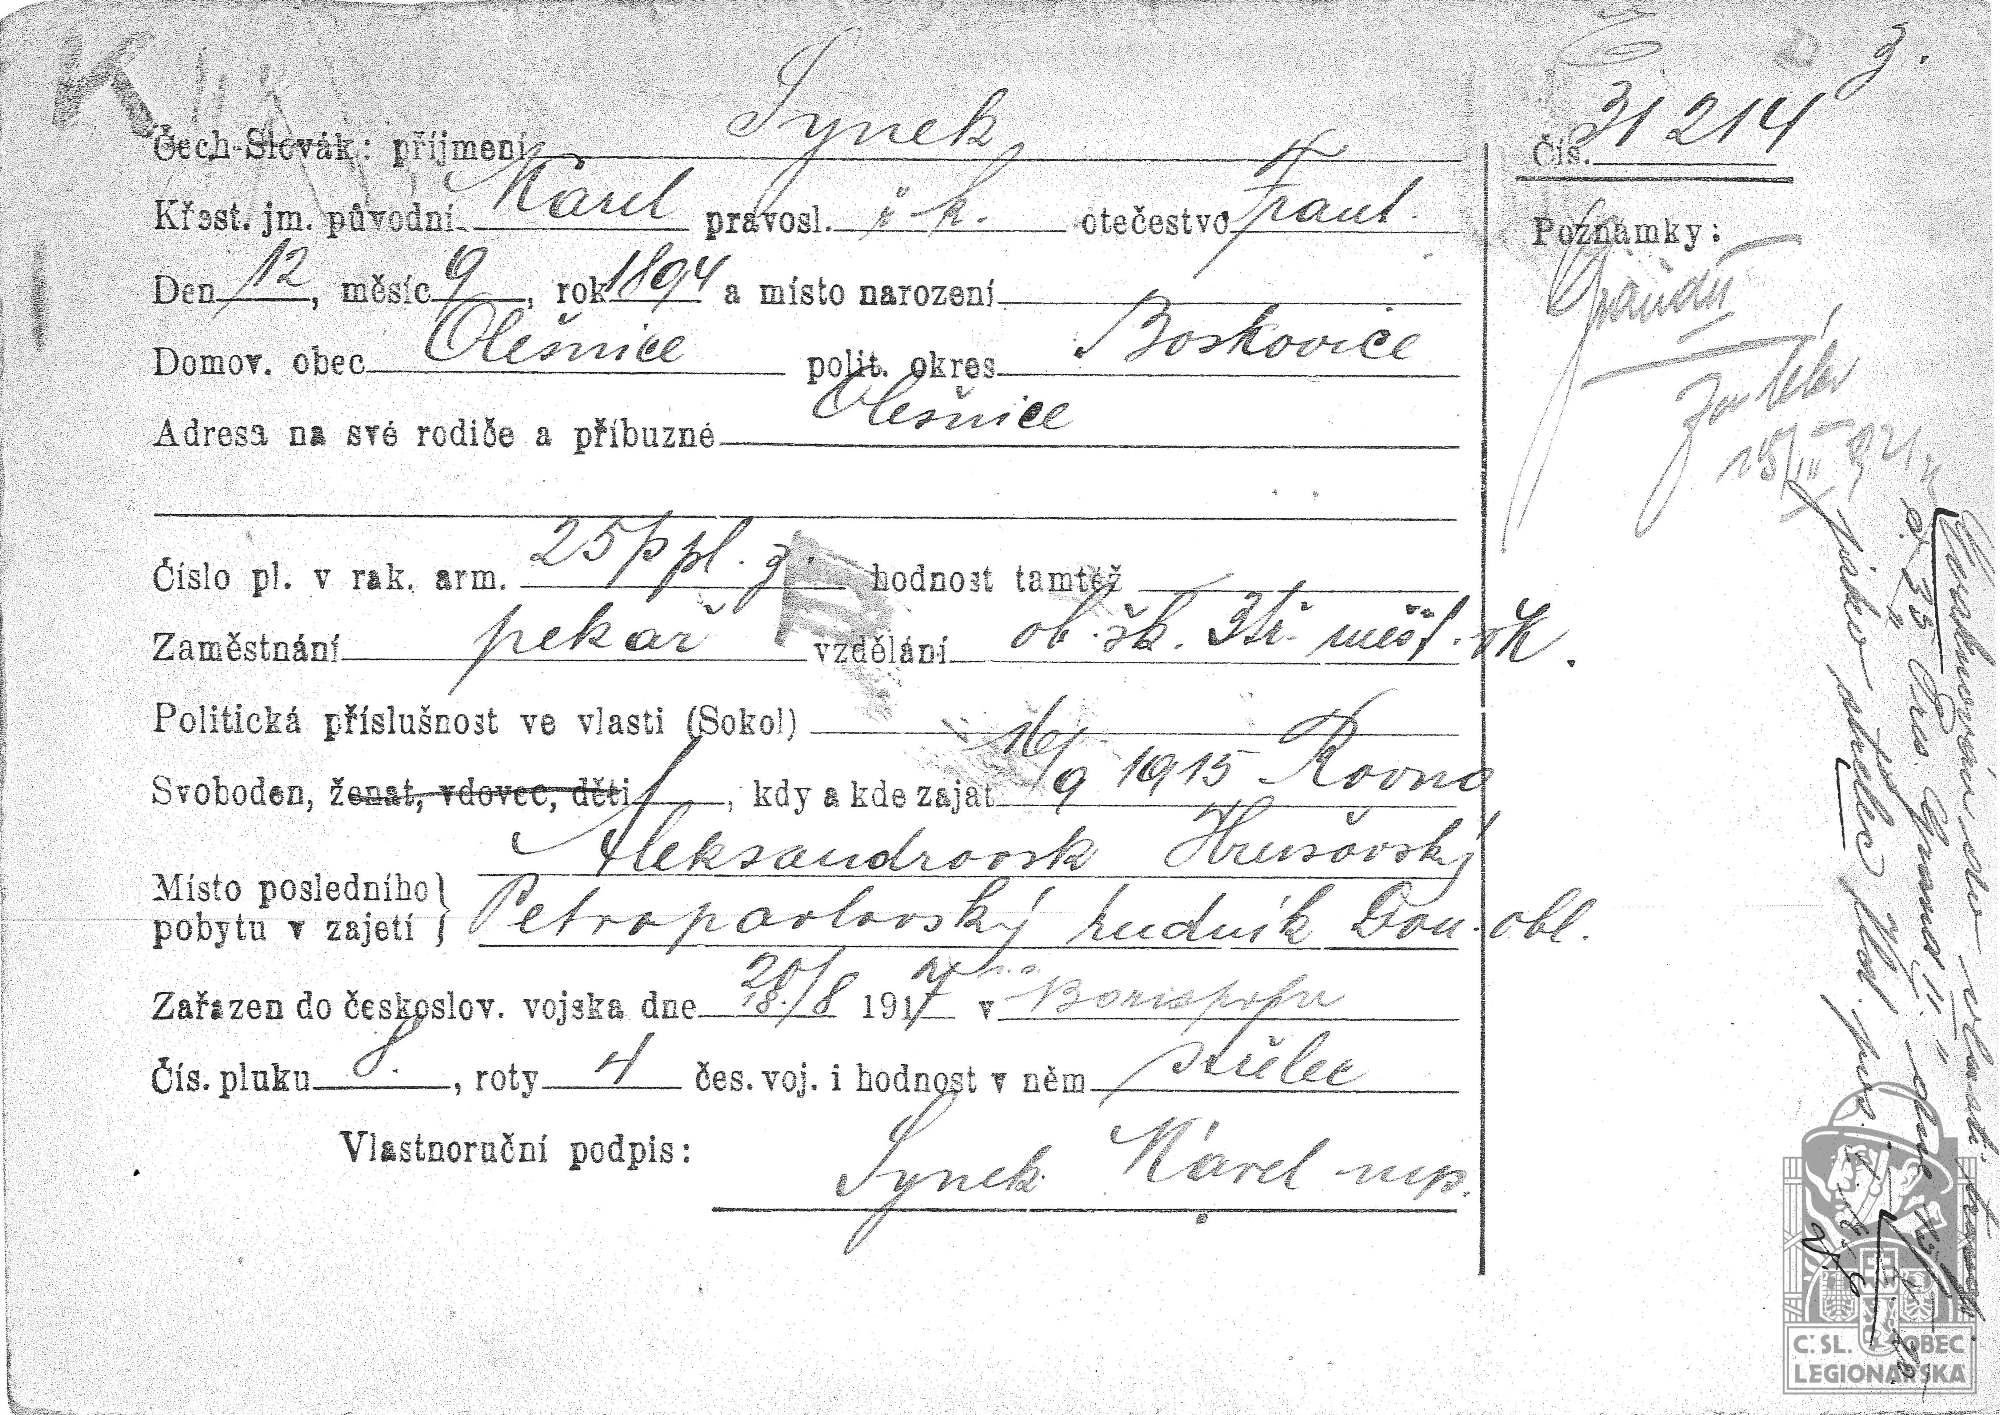 K
Čech-Slovák: příjmení Synek
Křest. jm. původní Karel pravosl. ř. k. otečestvo Frant.
Den 12, měsíc 9, rok 1894 a místo narození
Domov. obec Olešnice polit. okres Boskovice
Adresa na své rodiče a příbuzné Olešnice
Číslo pl. v rak. arm. 25 p pl. hodnost tamtéž
Zaměstnání pekař vzdělání ob. šk. 3 tř. měšť.
Politická příslušnost ve vlasti (Sokol)
Svoboden, ženat, vdovec, děti, kdy a kde zajat 16/9 1915 Rovno
Místo posledního pobytu v zajetí } Aleksandrovsk Hrušovský
Petropavlovský rudnik Don. obl.
Zařazen do českoslov. vojska dne 20/8 18. 1917 v Borispolu
Čís. pluku 8., roty 4 čes. voj. i hodnost v něm střelec
Vlastnoruční podpis: Synek Karel mp.
Čís. 31214
Poznámky:
15/III 921
jako střelec
Č. SL. OBEC
LEGIONÁŘSKÁ